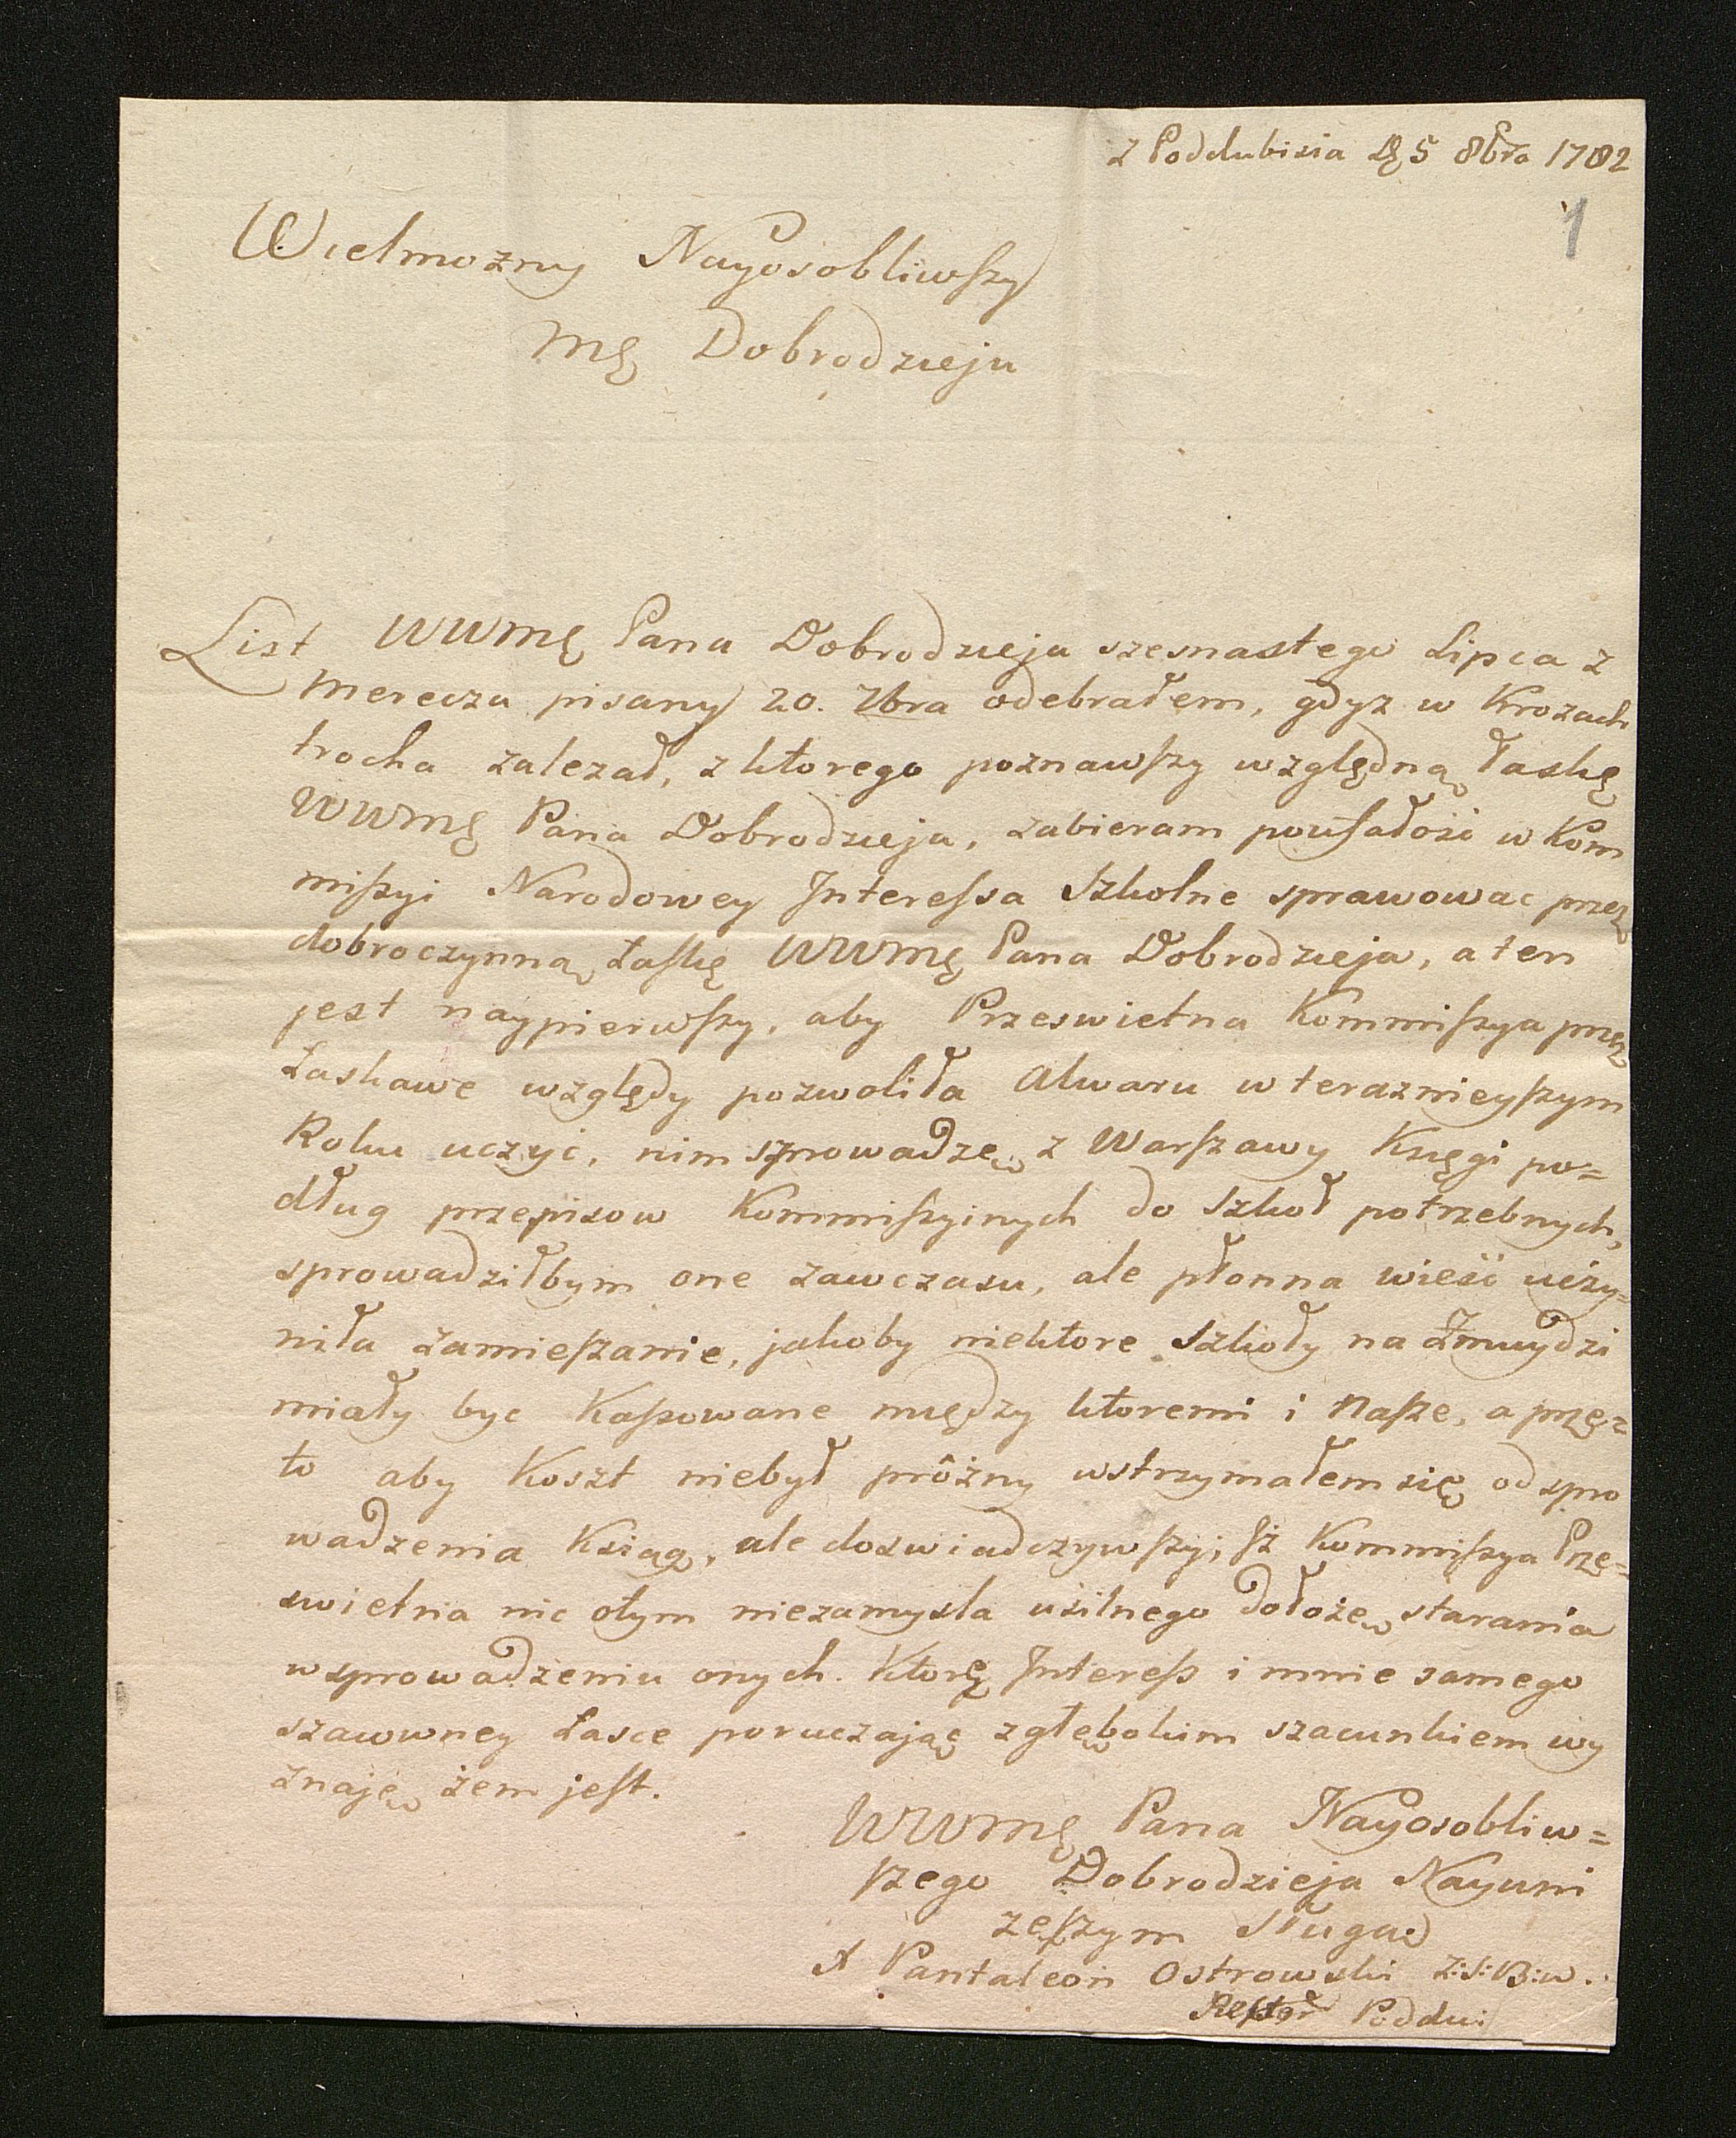 z Poddubisia D 5 8bra 1782
1
Wielmozny Nayosobliwszy
Mę Dobrodzieju
List WWMę Pana Dobrodzieja szesnastego Lipca z
Merecza pisany 20. 7bra odebrałem, gdyz w Krozach
trocha zalezał, z ktorego poznawszy względną łaskę
WWMę Pana Dobrodzieja, zabieram poufałość w Kom
missyi Narodowey Interessa Szkolne sprawowac przez
dobroczynną łaskę WWMę Pana Dobrodzieja, a ten
jest naypierwszy, aby Przeswietna Kommissya przez
Łaskawe względy pozwoliła Alwaru w teraznieyszym
Roku uczyć, nim sprowadzę z Warszawy Księgi po=
dług przepisow Kommissyinych do Szkoł potrzebnych,
sprowadziłbym one zawczasu, ale płonna wieść uczy=
niła zamieszanie, jakoby niektore Szkoły na Żmuydzi
miały byc Kassowane między ktoremi i Nasze, a przez=
to aby Koszt niebył prôżny wstrzymałem się od spro
wadzenia Ksiąg, ale doswiadczywszy, iż Kommissya Prze=
swietna nic otym niezamysla usilnego dołożę starania
w sprowadzeniu onych. Ktory Interess i mnie samego
szanowney Łasce poruczając z głębokim szacunkiem wy
znaję żem jest.
WWMę Pana Nayosobliw=
szego Dobrodzieja Nayuni
zeszym Sługą
X Pantaleon Ostrowski Z:S:B:W.
Rektor Poddu: